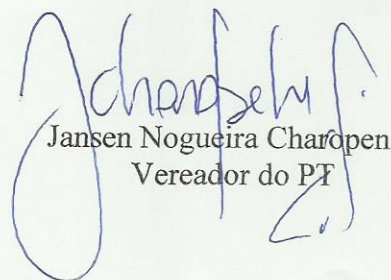 Jansen Nogueira Charopen
Vereador do PT